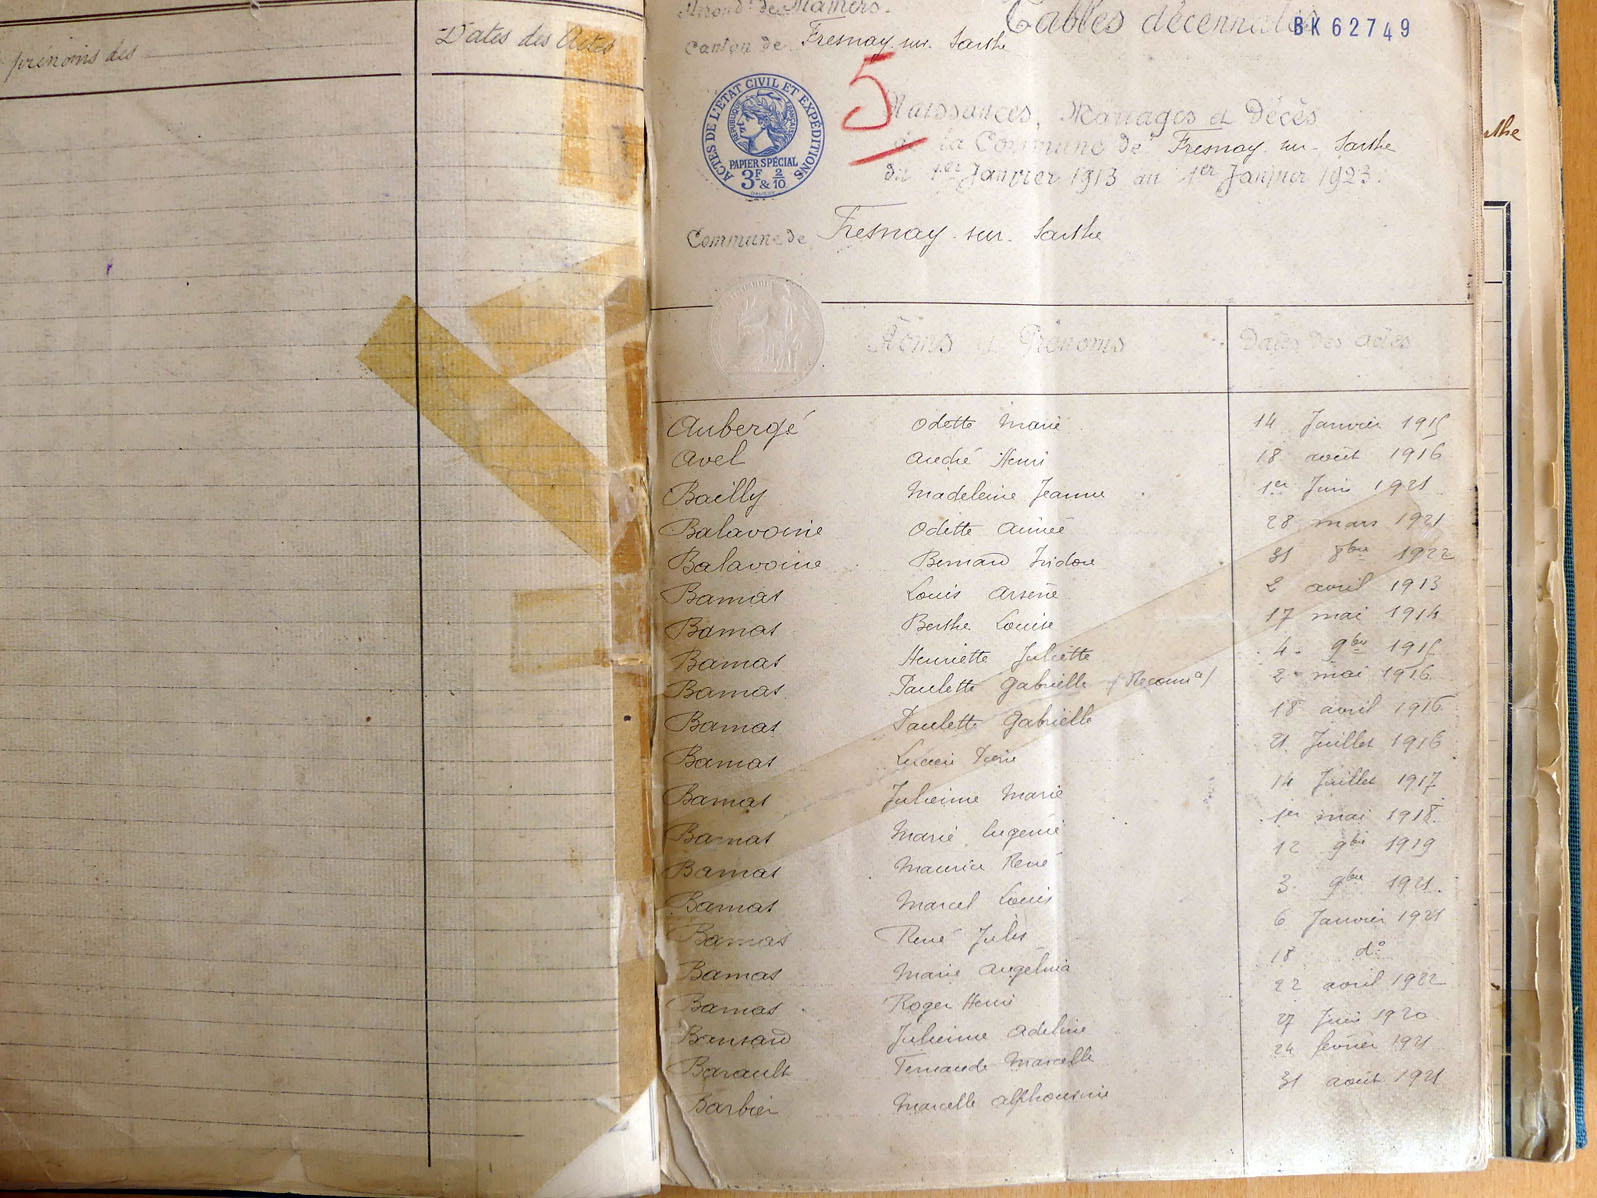 prénoms des
Dates des Actes
Arrond<sup>t</sup> de Mamers.
Canton de Fresnay-sur-Sarthe
Tables décennales
BK 62749
5
ACTES DE L'ETAT CIVIL ET EXPÉDITIONS
PAPIER SPÉCIAL
3F & 2/10
Naissances, Mariages et Décès
de la Commune de Fresnay-sur-Sarthe
du 1er Janvier 1913 au 1er Janvier 1923.
Commune de Fresnay-sur-Sarthe
Noms et Prénoms Dates des actes
Aubergé Odette Marie 14 Janvier 1915
Avel André Henri 18 août 1916
Bailly Madeleine Jeanne 1er Juin 1921
Balavoine Odette Aimée 28 mars 1921
Balavoine Bernard Isidore 31 8bre 1922
Bamas Louis Arsène 2 avril 1913
Bamas Berthe Louise 17 mai 1914
Bamas Henriette Juliette 4 9bre 1915
Bamas Paulette Gabrielle 2 mai 1916
Bamas Paulette Gabrielle 18 avril 1916
Bamas Lucien 21 Juillet 1916
Bamas Julienne Marie 14 Juillet 1917
Bamas Marie Eugenie 1er mai 1918
Bamas Maurice René 12 9bre 1919
Bamas Marcel Louis 3 9bre 1921
Bamas René Jules 6 Janvier 1921
Bamas Marie Angelina 18 do
Bamas Roger Henri 22 avril 1922
Bansard Julienne Adeline 27 Juin 1920
Barault Fernande Marcelle 24 février 1921
Barbier Marcelle Alphonsine 31 août 1921